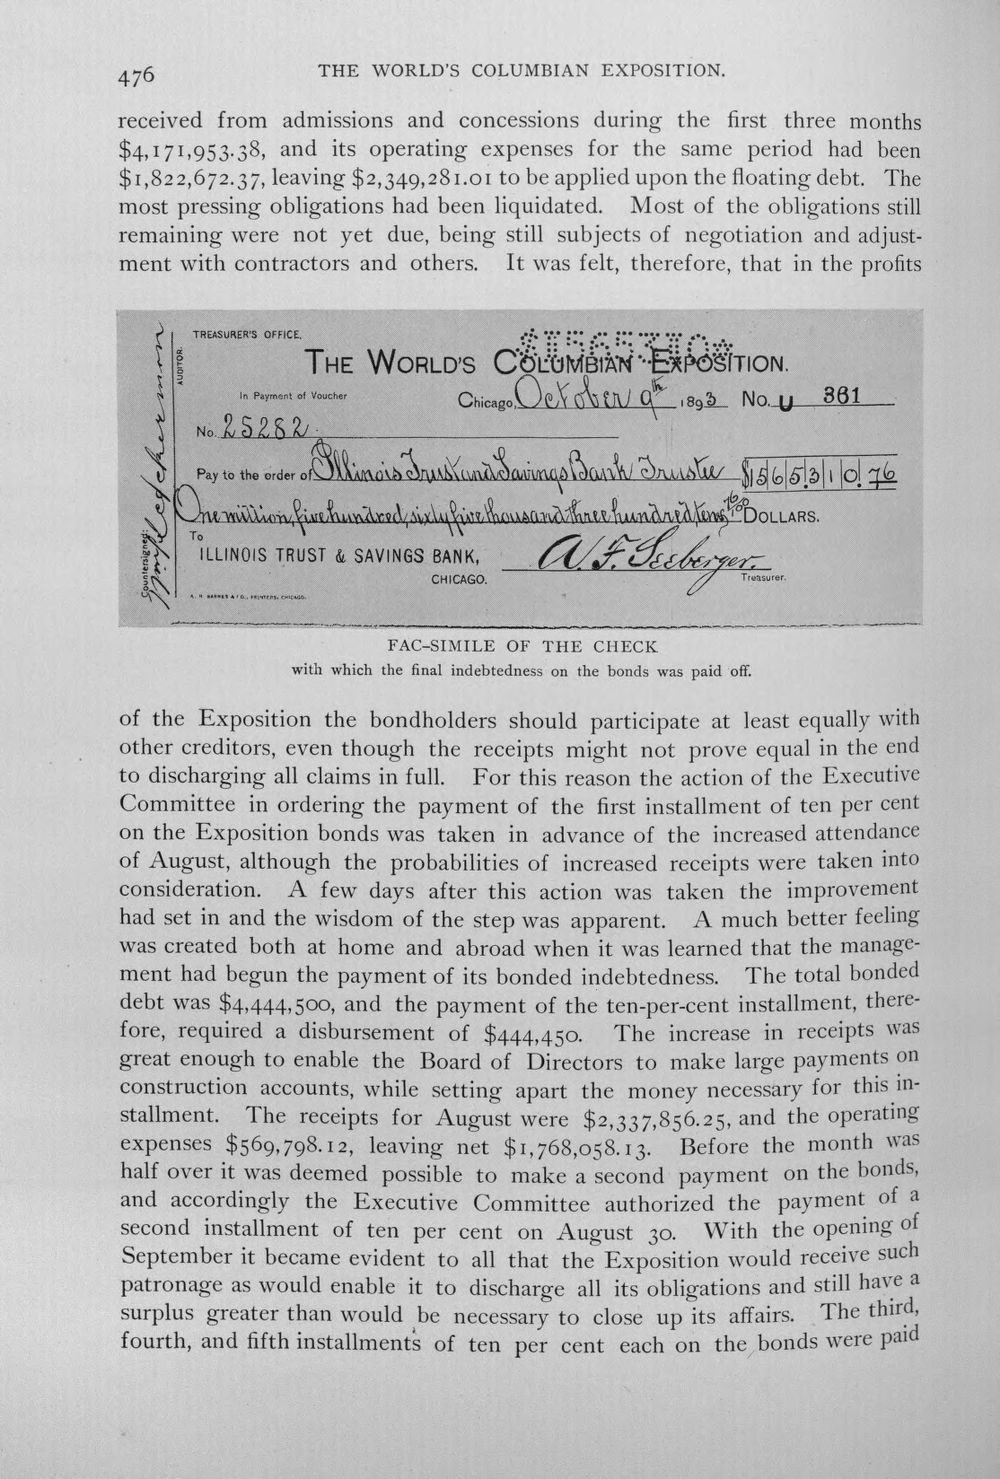 476
THE WORLD'S COLUMBIAN EXPOSITION.
received from admissions and concessions during the first three months
$4,171,953.38, and its operating expenses for the same period had been
$1,822,672.37, leaving $2,349,281.01 to be applied upon the floating debt. The
most pressing obligations had been liquidated. Most of the obligations still
remaining were not yet due, being still subjects of negotiation and adjust-
ment with contractors and others. It was felt, therefore, that in the profits
TREASURER'S OFFICE,
THE WORLD'S COLUMBIAN EXPOSITION.
In Payment of Voucher
Chicago, October 9th, 1893 No. U 361
No. 25282
Pay to the order of Illinois Trust and Savings Bank Trustee $1565310.76
One million, five hundred, sixty five thousand three hundred ten & 76/100 DOLLARS.
To
ILLINOIS TRUST & SAVINGS BANK,
CHICAGO.
A. F. Seeberger.
Treasurer.
Countersigned:
AUDITOR.
FAC-SIMILE OF THE CHECK
with which the final indebtedness on the bonds was paid off.
of the Exposition the bondholders should participate at least equally with
other creditors, even though the receipts might not prove equal in the end
to discharging all claims in full. For this reason the action of the Executive
Committee in ordering the payment of the first installment of ten per cent
on the Exposition bonds was taken in advance of the increased attendance
of August, although the probabilities of increased receipts were taken into
consideration. A few days after this action was taken the improvement
had set in and the wisdom of the step was apparent. A much better feeling
was created both at home and abroad when it was learned that the manage-
ment had begun the payment of its bonded indebtedness. The total bonded
debt was $4,444,500, and the payment of the ten-per-cent installment, there-
fore, required a disbursement of $444,450. The increase in receipts was
great enough to enable the Board of Directors to make large payments on
construction accounts, while setting apart the money necessary for this in-
stallment. The receipts for August were $2,337,856.25, and the operating
expenses $569,798.12, leaving net $1,768,058.13. Before the month was
half over it was deemed possible to make a second payment on the bonds,
and accordingly the Executive Committee authorized the payment of a
second installment of ten per cent on August 30. With the opening of
September it became evident to all that the Exposition would receive such
patronage as would enable it to discharge all its obligations and still have a
surplus greater than would be necessary to close up its affairs. The third,
fourth, and fifth installments of ten per cent each on the bonds were paid